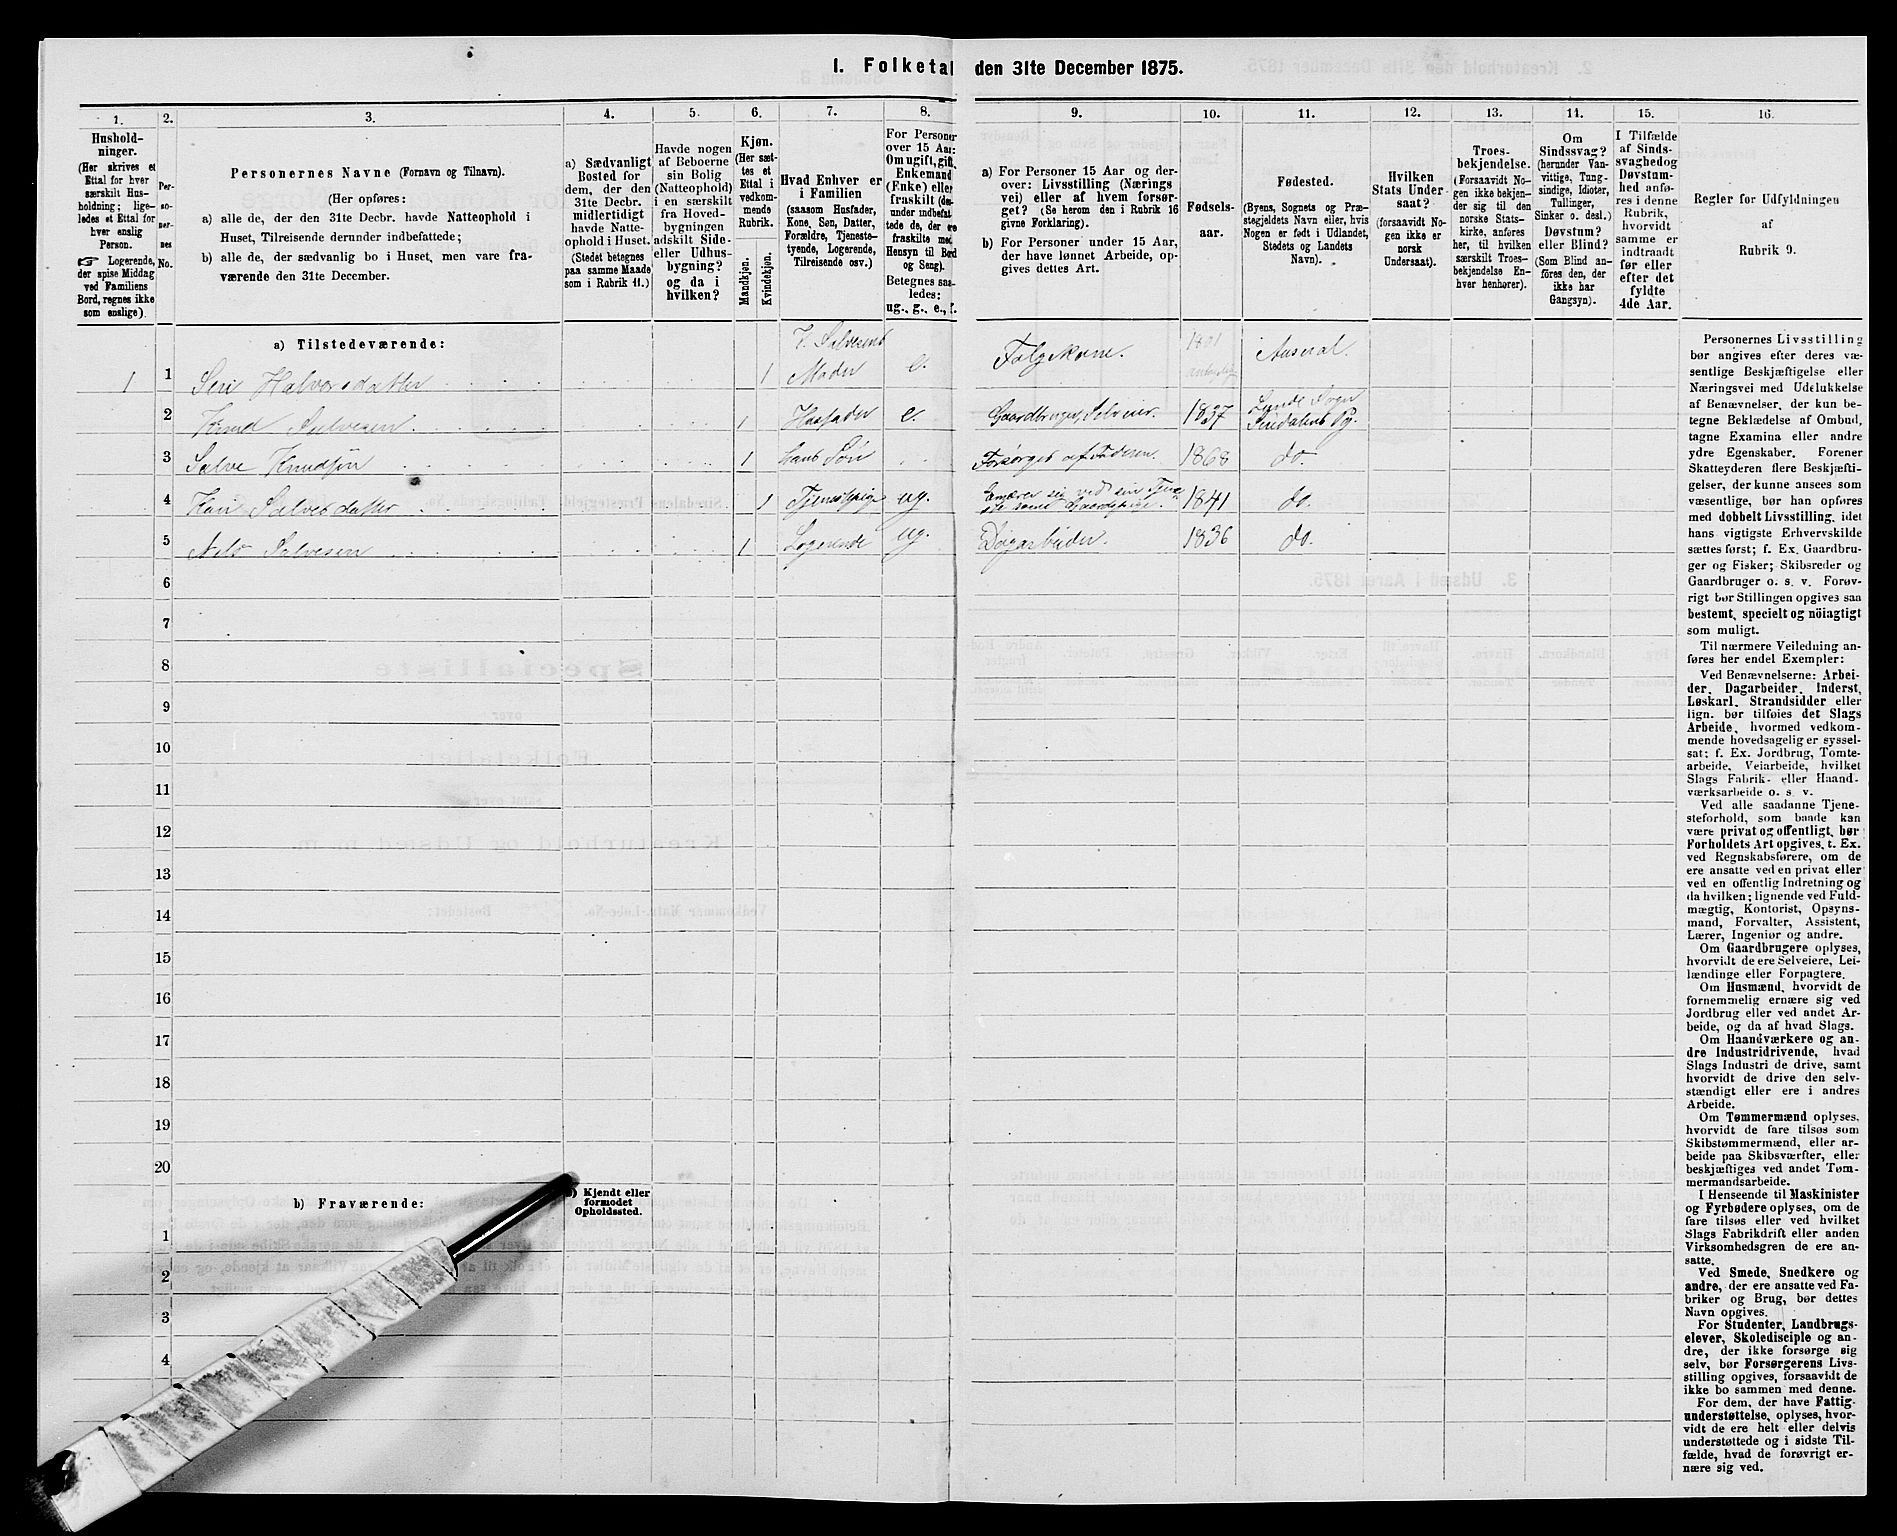 1. Folketal den 31te December 1875.
1.
Hushold-
ninger.
(Her skrives et
Ettal for hver
særskilt Hus-
holdning; lige-
ledes et Ettal for
hver enslig
Person.
☞ Logerende,
der spise Middag
ved Familiens
Bord, regnes ikke
som enslige).
2.
Per-
so-
ner-
nes
No.
3.
Personernes Navne (Fornavn og Tilnavn).
(Her opføres:
a) alle de, der den 31te Decbr. havde Natteophold i
Huset, Tilreisende derunder indbefattede;
b) alle de, der sædvanlig bo i Huset, men vare fra-
værende den 31te December.
4.
a) Sædvanligt
Bosted for
dem, der den
31te Decbr.
midlertidigt
havde Natte-
ophold i Huset.
(Stedet betegnes
paa samme Maade
som i Rubrik 11.)
5.
Havde nogen
af Beboerne
sin Bolig
(Natteophold)
i en særskilt
fra Hoved-
bygningen
adskilt Side-
eller Udhus-
bygning?
og da i
hvilken?
6.
Kjøn.
(Her sæt-
tes et
Ettal i
vedkom-
mende
Rubrik.
Mandkjøn.
Kvindekjøn.
7.
Hvad Enhver er
i Familien
(saasom Husfader,
Kone, Søn, Datter,
Forældre, Tjeneste-
tyende, Logerende,
Tilreisende osv.)
8.
For Personer
over 15 Aar:
Om ugift, gift,
Enkemand
(Enke) eller
fraskilt (de-
under indbefat-
tede de, der ere
fraskilte med
Hensyn til Bord
og Seng).
Betegnes saa-
ledes:
ug., g., e., f.
9.
a) For Personer 15 Aar og der-
over: Livsstilling (Nærings
vei) eller af hvem forsør-
get? (Se herom den i Rubrik 16
givne Forklaring).
b) For Personer under 15 Aar,
der have lønnet Arbeide, op-
gives dettes Art.
10.
Fødsels-
aar.
11.
Fødested.
(Byens, Sognets og Præ-
stegjeldets Navn eller, hvis
Nogen er født i Udlandet,
Stedets og Landets
Navn).
12.
Hvilken
Stats Under-
saat?
(forsaavidt No-
gen ikke er
norsk
Undersaat).
13.
Troes-
bekjendelse.
(Forsaavidt No-
gen ikke bekjen-
der sig til den
norske Stats-
kirke, anføres
her, til hvilken
særskilt Troes-
bekjendelse En-
hver henhører).
14.
Om
Sindssvag?
(herunder Van-
vittige, Tung-
sindige, Idioter,
Tullinger,
Sinker o. desl.)
Døvstum?
eller Blind?
(Som Blind an-
føres den, der
ikke har
Gangsyn).
15.
I Tilfælde
af Sinds-
svaghed og
Døvstum-
hed anfø-
res i denne
Rubrik,
hvorvidt
samme er
indtraadt
før eller
efter det
fyldte
4de Aar.
16.
Regler for Udfyldningen
af
Rubrik 9.
a) Tilstedeværende:
1 1 Siri Halvorsdatter 1 K. Salvesens Moder e. Folgekone. 1801 Aaseral.
2 Knud Salvesen 1 Husfader e. Gaardbruger, Selveier. 1837 Lunde Sogn Siredalens Pg.
3 Salve Knudsøn 1 hans Søn Forsørges af Faderen. 1868 do.
4 Kari Salvesdatter 1 Tjenestpige ug. Ernærer sig ved sin Tjene- ste som Gaardspige. 1841 do.
5 Nils Salvesen 1 Logerende ug. Dagarbeider. 1836 do.
6
7
8
9
10
11
12
13
14
15
16
17
18
19
20
b) Fraværende:
b) Kjendt eller
formodet
Opholdssted.
1
2
3
4
Personernes Livsstilling
bør angives efter deres væ-
sentlige Beskjæftigelse eller
Næringsvei med Udelukkelse
af Benævnelser, der kun be-
tegne Beklædelse af Ombud,
tagne Examina eller andre
ydre Egenskaber. Forener
Skatteyderen flere Beskjæfti-
gelser, der kunne ansees som
væsentlige, bør han opføres
med dobbelt Livsstilling, idet
hans vigtigste Erhvervskilde
sættes først; f. Ex. Gaardbru-
ger og Fisker; Skibsreder og
Gaardbruger o. s. v. Forøv-
rigt bør Stillingen opgives saa
bestemt, specielt og nöiagtigt
som muligt.
Til nærmere Veiledning an-
føres her endel Exempler:
Ved Benævnelserne: Arbei-
der, Dagarbeider, Inderst,
Løskarl, Strandsidder eller
lign. bør tilføies det Slags
Arbeide, hvormed vedkom-
mende hovedsagelig er syssel-
sat; f. Ex. Jordbrug, Tomte-
arbeide, Veiarbeide, hvilket
Slags Fabrik- eller Haand-
værksarbeide o. s. v.
Ved alle saadanne Tjene-
steforhold, som baade kan
være privat og offentligt, bør
Forholdets Art opgives, t. Ex.
ved Regnskabsførere, om de
ere ansatte ved en privat eller
ved en offentlig Indretning og
da hvilken; lignende ved Fuld-
mægtig, Kontorist, Opsyns-
mand, Forvalter, Assistent,
Lærer, Ingeniør og andre.
Om Gaardbrugere oplyses,
hvorvidt de ere Selveiere, Lei-
lændinge eller Forpagtere.
Om Husmænd, hvorvidt de
fornemmelig ernære sig ved
Jordbrug eller ved andet Ar-
beide, og da af hvad Slags.
Om Haandværkere og an-
dre Industridrivende, hvad
Slags Industri de drive, samt
hvorvidt de drive den selv-
stændigt eller ere i andres
Arbeide.
Om Tømmermænd oplyses,
hvorvidt de fare tilsøs som
Skibstømmermænd, eller ar-
beide paa Skibsværfter, eller
beskjæftiges ved andet Tøm-
mermandsarbeide.
I Henseende til Maskinister
og Fyrbødere oplyses, om de
fare tilsøs eller ved hvilket
Slags Fabrikdrift eller anden
Virksomhedsgren de ere an-
satte.
Ved Smede, Snedkere og
andre, der ere ansatte ved Fa-
briker og Brug, bør dettes
Navn opgives.
For Studenter, Landbrugs-
elever, Skoledisciple og an-
dre, der ikke forsørge sig
selv, bør Forsørgerens Livs-
stilling opgives, forsaavidt de
ikke bo sammen med denne.
For dem, der have Fattig-
understøttelse, oplyses, hvor-
vidt de ere helt eller delvis
understøttede og i sidste Til-
fælde, hvad de forøvrigt er-
nære sig ved.